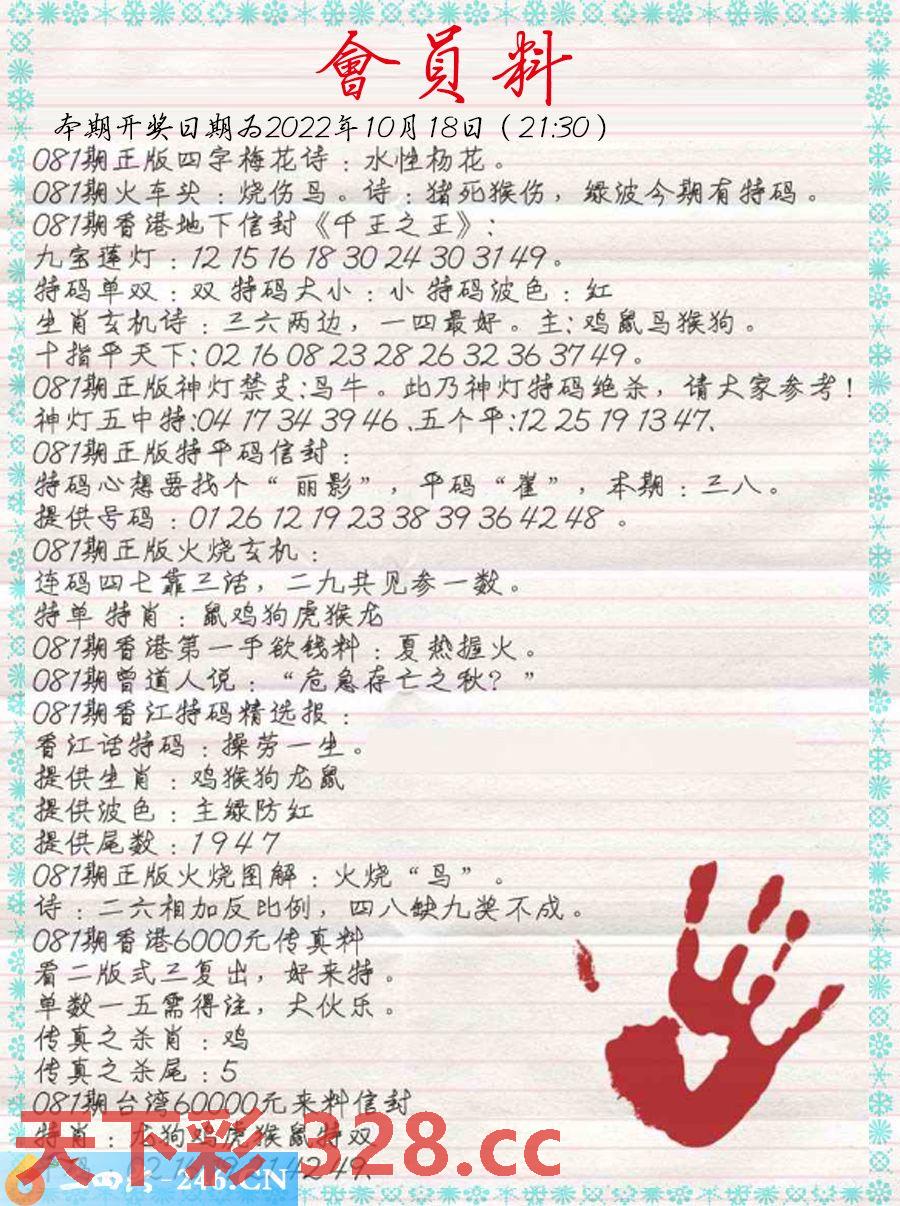 會員料
本期开奖日期为2022年10月18日（21:30）
081期正版四字梅花诗：水性杨花。
081期火车头：烧伤鸟。诗：猪死猴伤，绿波今期有特码。
081期香港地下信封《千王之王》：
九宝莲灯：12 15 16 18 30 24 30 31 49。
特码单双：双 特码大小：小 特码波色：红
生肖玄机诗：三六两边，一四最好。主：鸡鼠马猴狗。
十指平天下：02 16 08 23 28 26 32 36 37 49。
081期正版神灯禁支：马牛。此乃神灯特码绝杀，请大家参考！
神灯五中特:04 17 34 39 46、五个平:12 25 19 13 47、
081期正版特平码信封：
特码心想要找个“丽影”，平码“崔”，本期：三八。
提供号码：01 26 12 19 23 38 39 36 42 48 。
081期正版火烧玄机：
连码四七靠三话，二九共见参一数。
特单 特肖：鼠鸡狗虎猴龙
081期香港第一手欲钱料：夏热握火。
081期曾道人说：“危急存亡之秋？”
081期香江特码精选报：
香江话特码：操劳一生。
提供生肖：鸡猴狗龙鼠
提供波色：主绿防红
提供尾数：1 9 4 7
081期正版火烧图解：火烧“鸟”。
诗：二六相加反比例，四八缺九奖不成。
081期香港6000元传真料
看二版式三复出，好来特。
单数一五需得注，大伙乐。
传真之杀肖：鸡
传真之杀尾：5
081期台湾60000元来料信封
特肖：龙狗鸡虎猴鼠特双
天下彩1328.cc
-246.CN
42 49、